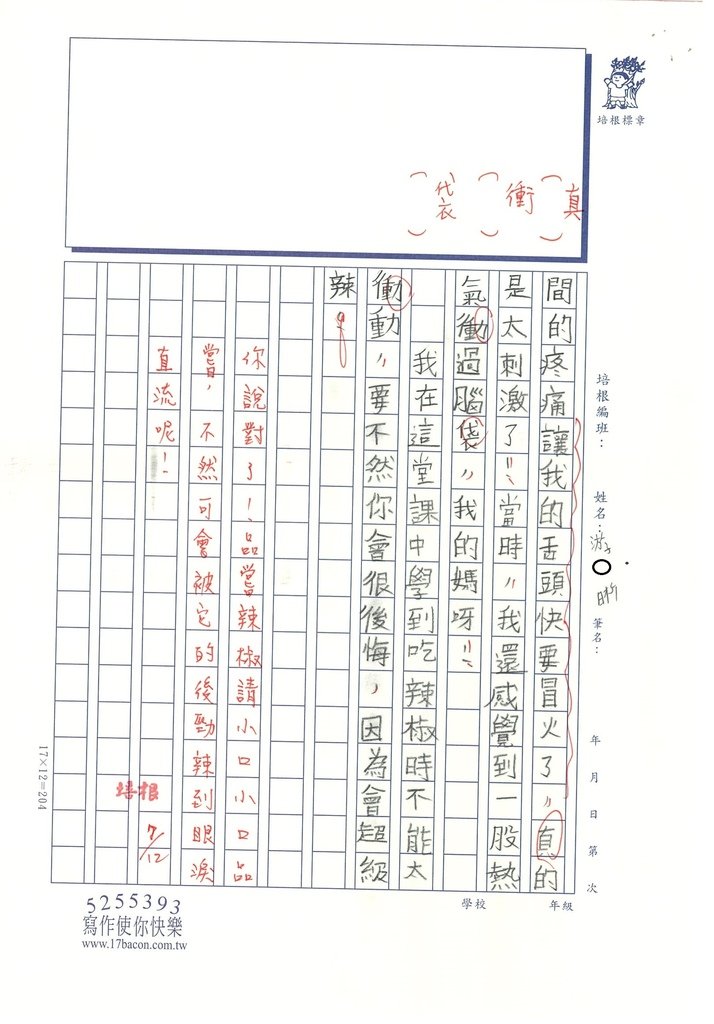 培根標章
（真）
（衝）
（代衣）
培根編班：
姓名：游 昕
筆名：
年 月 日 第 次
間的疼痛讓我的舌頭快要冒火了，真的
是太刺激了！當時，我還感覺到一股熱
氣衝過腦袋，我的媽呀！
我在這堂課中學到吃辣椒時不能太
衝動，要不然你會很後悔，因為會超級
辣。
你說對了！品嘗辣椒請小口小口品
嘗，不然可會被它的後勁辣到眼淚
直流呢！
培根 7/12
17×12=204
5255393
寫作使你快樂
www.17bacon.com.tw
學校
年級